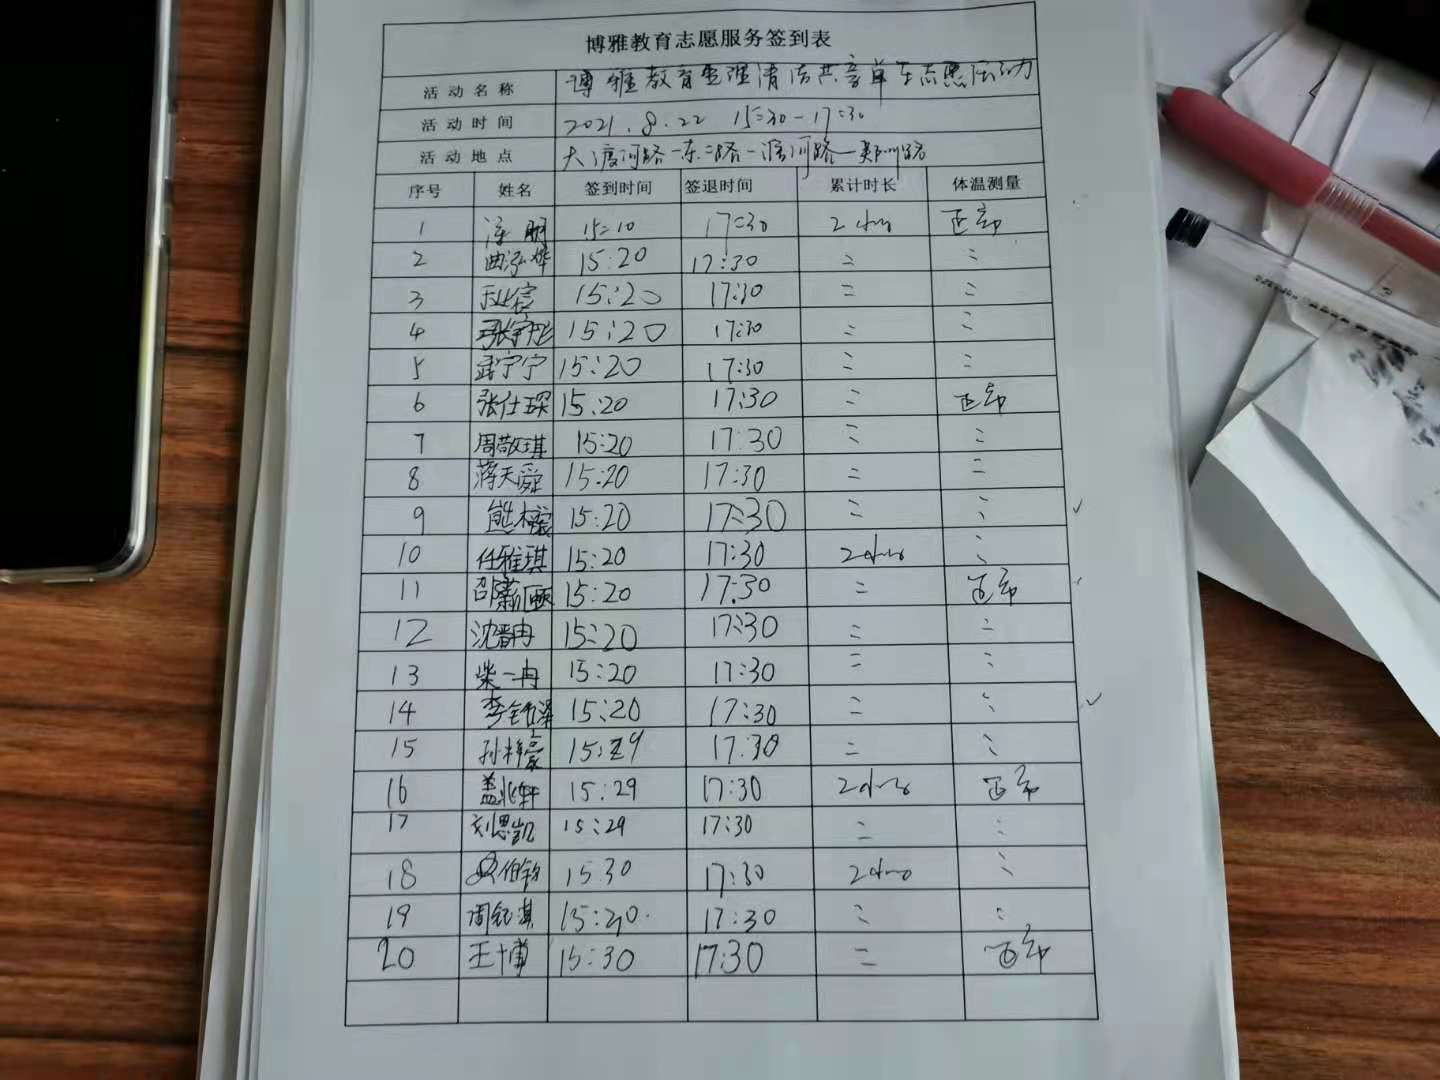 博雅教育志愿服务签到表
活动名称 博雅教育整理清洁共享单车志愿活动
活动时间 2021.8.22 15:30-17:30
活动地点 大渡河路-东二路- -郑州路
序号 姓名 签到时间 签退时间 累计时长 体温测量
1 15:10 17:30 2 正常
2 曲泓烨 15:20 17:30 〃 〃
3 15:20 17:30 〃 〃
4 15:20 17:30 〃 〃
5 武宁宁 15:20 17:30 〃 〃
6 张仕琛 15:20 17:30 〃 正常
7 周敬琪 15:20 17:30 〃 〃
8 蒋天舜 15:20 17:30 〃 〃
9 15:20 17:30 〃 〃
10 任雅琪 15:20 17:30 2 〃
11 15:20 17:30 〃 正常
12 15:20 17:30 〃 〃
13 柴一冉 15:20 17:30 〃 〃
14 15:20 17:30 〃 〃
15 孙梓豪 15:29 17:30 〃 〃
16 盖兆轩 15:29 17:30 2 正常
17 刘思凯 15:29 17:30 〃 〃
18 15:30 17:30 2 〃
19 17:30 〃 〃
20 王博 15:30 17:30 〃 正常